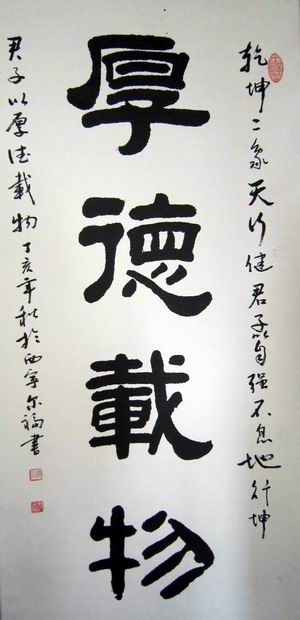 厚德載物
乾坤二象天行健君子以自强不息地行坤
君子以厚德載物丁亥年秋於西宁尔福書